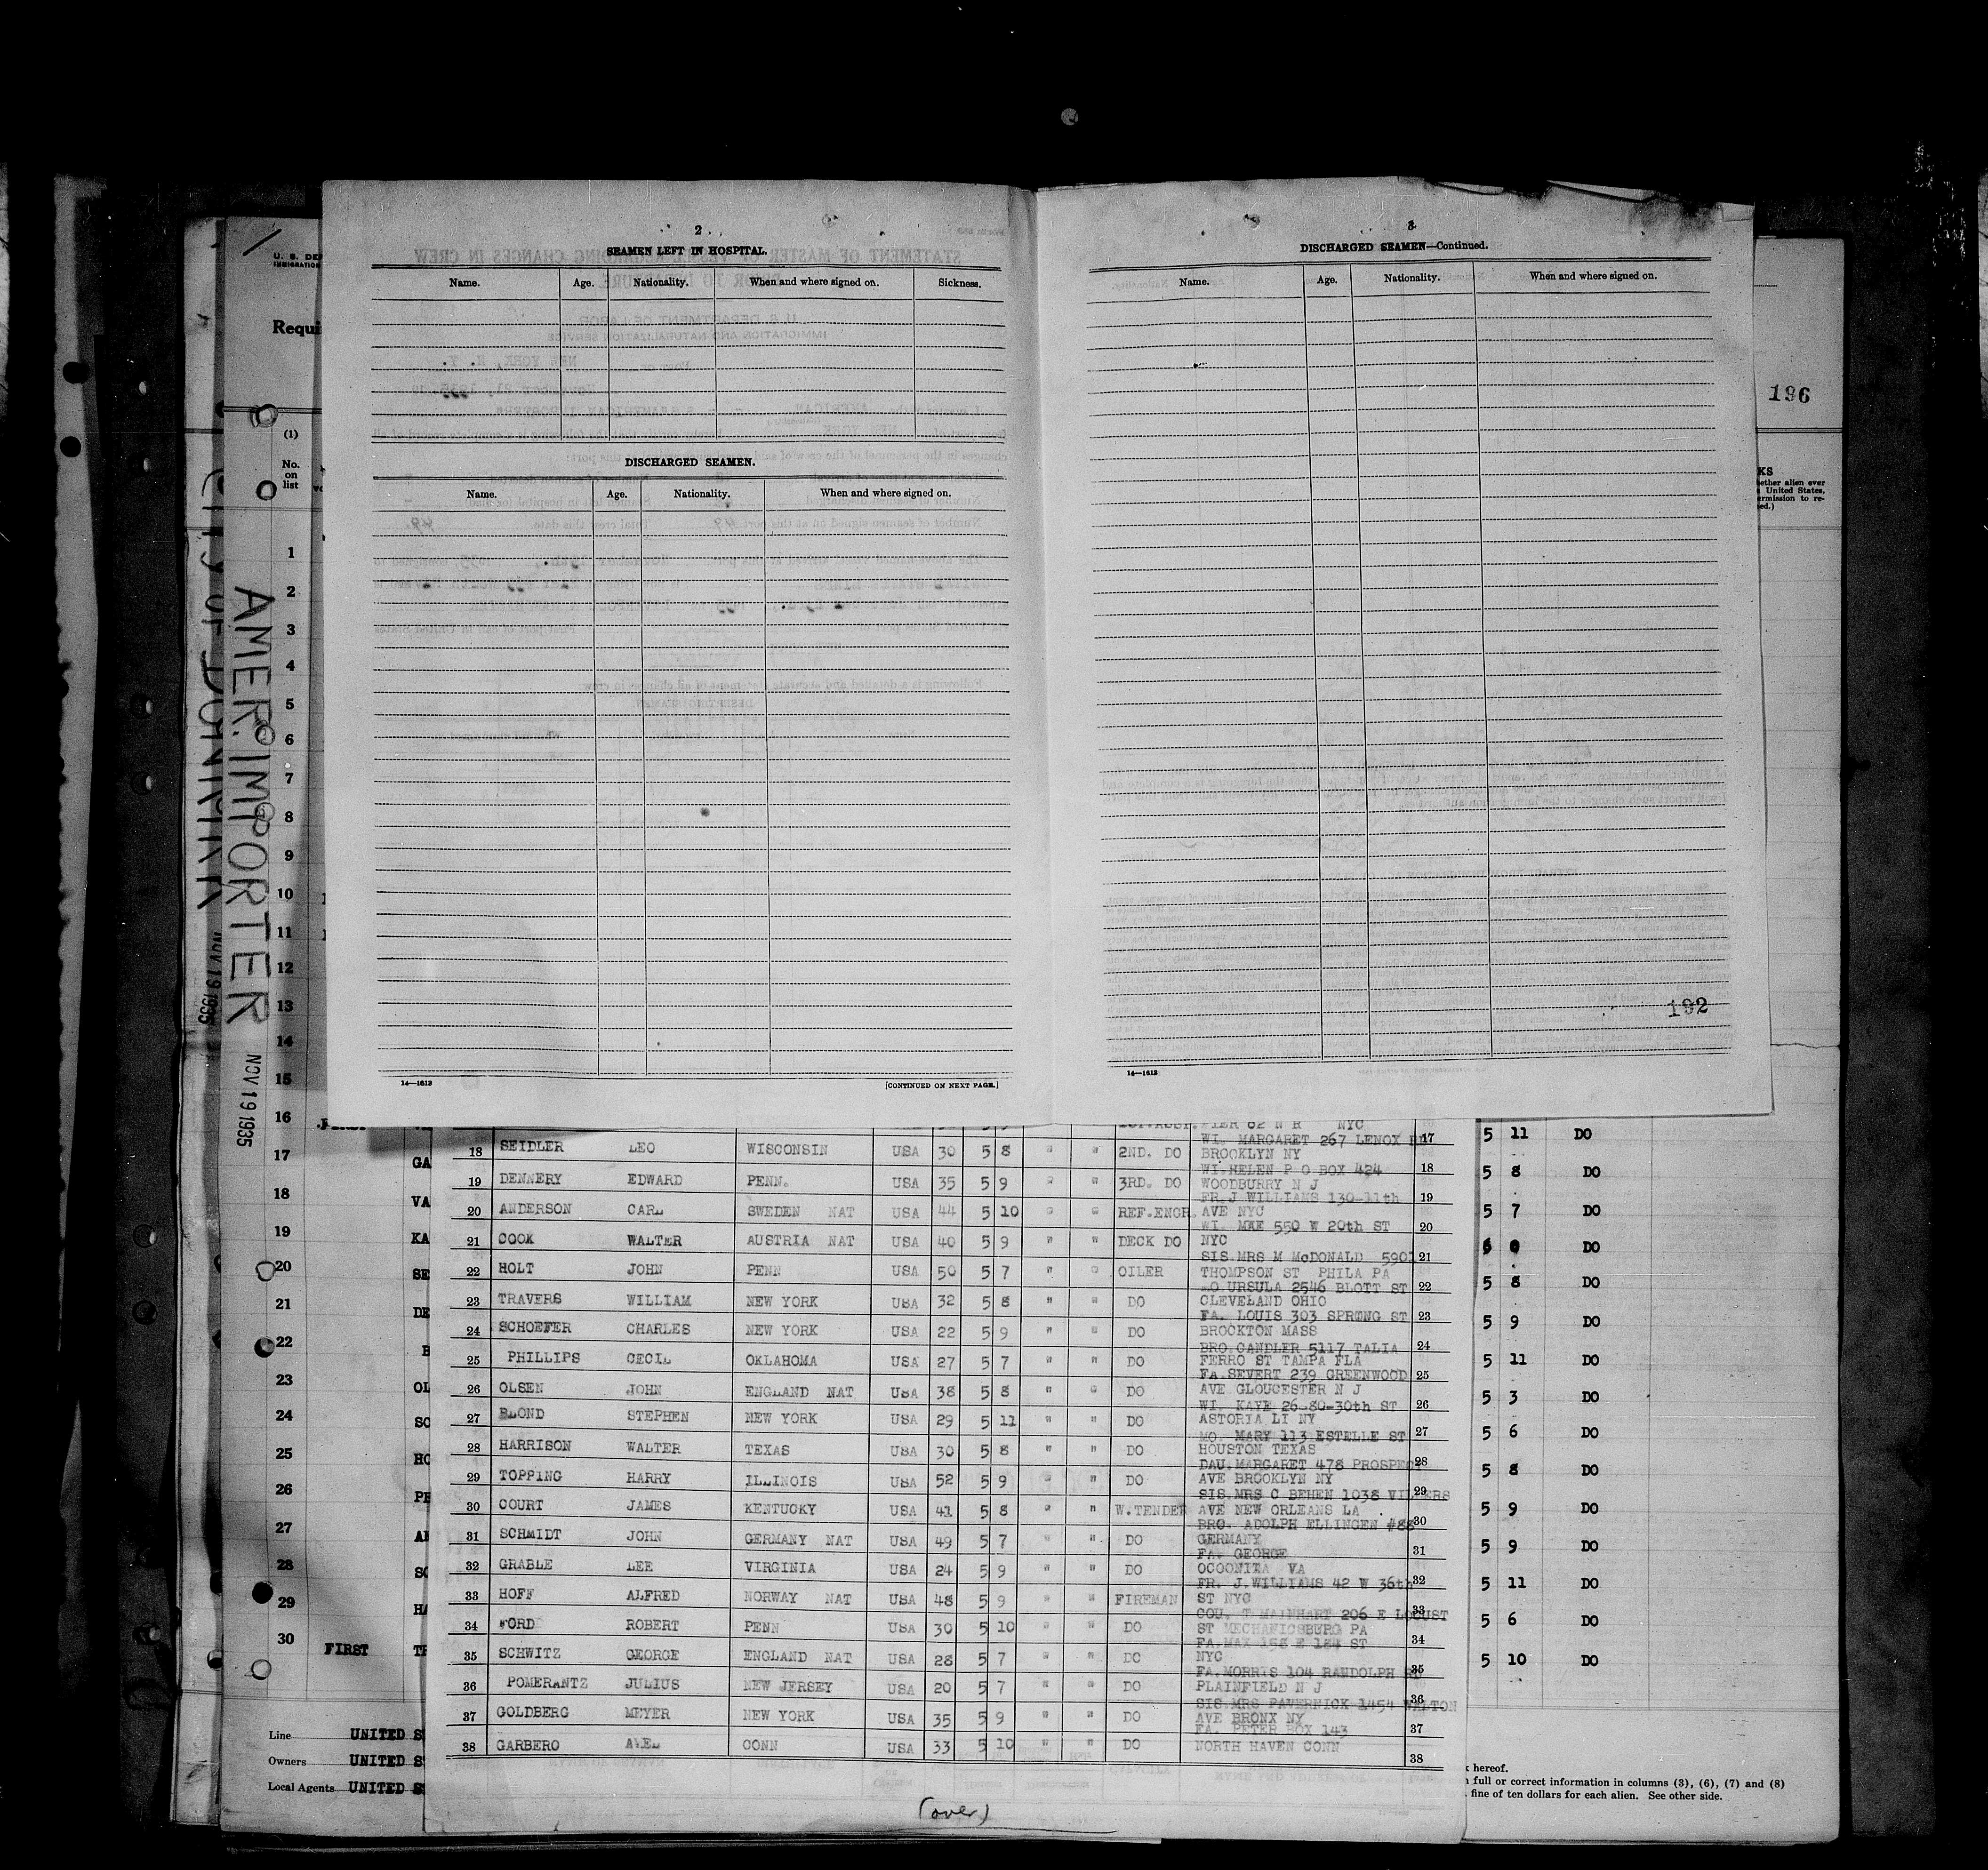 2
SEAMEN LEFT IN HOSPITAL.
Name. Age. Nationality. When and where signed on. Sickness.
DISCHARGED SEAMEN.
Name. Age. Nationality. When and where signed on.
14—1613
[CONTINUED ON NEXT PAGE.]
3
DISCHARGED SEAMEN—Continued.
Name. Age. Nationality. When and where signed on.
192
14—1613
U. S. DE
IMMIGRATION
Requi
(1)
No.
on
list
1
2
3
4
5
6
7
8
9
10
11
12
13
14
15
16 FIRST
17 GA
18 VA
19 KA
20 SE
21 DE
22 B
23 OL
24 SC
25 HO
26 PH
27
28 SC
29 HA
30 FIRST
Line UNITED S
Owners UNITED S
Local Agents UNITED S
CITY OF
NOV 19 1935
AMER. IMPORTER
NOV 19 1935
PIER 62 N R NYC
WI. MARGARET 267 LENOX 17
18 SEIDLER LEO WISCONSIN USA 30 5 8 " " 2ND. DO BROOKLYN NY
WI HELEN P O BOX 424 18
19 DENNERY EDWARD PENN. USA 35 5 9 " " 3RD. DO WOODBURRY N J
FR.J WILLIAMS 130-11th 19
20 ANDERSON CARL SWEDEN NAT USA 44 5 10 " " REF.ENGR AVE NYC
WI. MAE 550 W 20th ST 20
21 COOK WALTER AUSTRIA NAT USA 40 5 9 " " DECK DO NYC
SIS.MRS M McDONALD 5901 21
22 HOLT JOHN PENN USA 50 5 7 " " OILER THOMPSON ST PHILA PA
MO.URSULA 2546 BLOTT ST 22
23 TRAVERS WILLIAM NEW YORK USA 32 5 8 " " DO CLEVELAND OHIO
FA. LOUIS 303 SPRING ST 23
24 SCHOEFER CHARLES NEW YORK USA 22 5 9 " " DO BROCKTON MASS
BRO.CANDLER 5117 TALIA 24
25 PHILLIPS CECIL OKLAHOMA USA 27 5 7 " " DO FERRO ST TAMPA FLA
FA.SEVERT 239 GREENWOOD 25
26 OLSEN JOHN ENGLAND NAT USA 38 5 8 " " DO AVE GLOUCESTER N J
WI. KAYE 26-80-30th ST 26
27 BLOND STEPHEN NEW YORK USA 29 5 11 " " DO ASTORIA LI NY
MO. MARY 113 ESTELLE ST 27
28 HARRISON WALTER TEXAS USA 30 5 8 " " DO HOUSTON TEXAS
DAU.MARGARET 478 PROSPECT 28
29 TOPPING HARRY ILLINOIS USA 52 5 9 " " DO AVE BROOKLYN NY
SIS.MRS C BEHEN 1038 29
30 COURT JAMES KENTUCKY USA 41 5 8 " " W.TENDER AVE NEW ORLEANS LA
BRO. ADOLPH ELLINGEN #88 30
31 SCHMIDT JOHN GERMANY NAT USA 49 5 7 " " DO GERMANY
FA. GEORGE 31
32 GRABLE LEE VIRGINIA USA 24 5 9 " " DO OCOONITA VA
FR. J.WILLIAMS 42 W 36th 32
33 HOFF ALFRED NORWAY NAT USA 48 5 9 " " FIREMAN ST NYC
COU. T MAINHART 206 E LOCUST 33
34 FORD ROBERT PENN USA 30 5 10 " " DO ST MECHANICSBURG PA
FA.MAX E 184 ST 34
35 SCHWITZ GEORGE ENGLAND NAT USA 28 5 7 " " DO NYC
FA.MORRIS 104 RANDOLPH 35
36 POMERANTZ JULIUS NEW JERSEY USA 20 5 7 " " DO PLAINFIELD N J
SIS MRS PAVERNICK 1454 WALTON 36
37 GOLDBERG MEYER NEW YORK USA 35 5 9 " " DO AVE BRONX NY
FA. PETER BOX 143 37
38 GARBERO AXEL CONN USA 33 5 10 " " DO NORTH HAVEN CONN
38
(over)
196
KS
hether alien ever
United States,
ermission to re-
ed.)
5 11 DO
5 8 DO
5 7 DO
6 0 DO
5 8 DO
5 9 DO
5 11 DO
5 3 DO
5 6 DO
5 8 DO
5 9 DO
5 9 DO
5 11 DO
5 6 DO
5 10 DO
hereof.
full or correct information in columns (3), (6), (7) and (8)
fine of ten dollars for each alien. See other side.